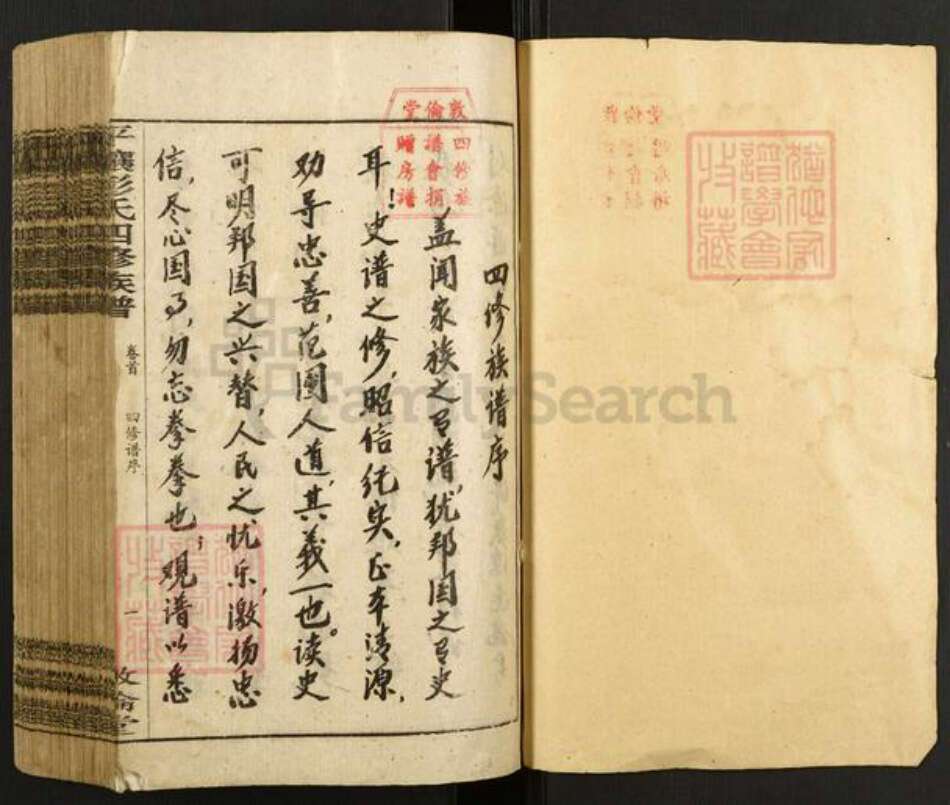 四修族谱序
盖闻家族之有谱，犹邦国之有史
耳！史谱之修，昭信纪实，正本清源，
劝导忠善，范围人道，其义一也。读史
可明邦国之兴替，人民之忧乐，激扬忠
信，尽心国事，勿忘拳拳也；观谱以悉
敦倫堂
四修族
譜會捐
贈房譜
襄彭氏四修族譜
卷首
四修谱序
一
敦倫堂
FamilySearch